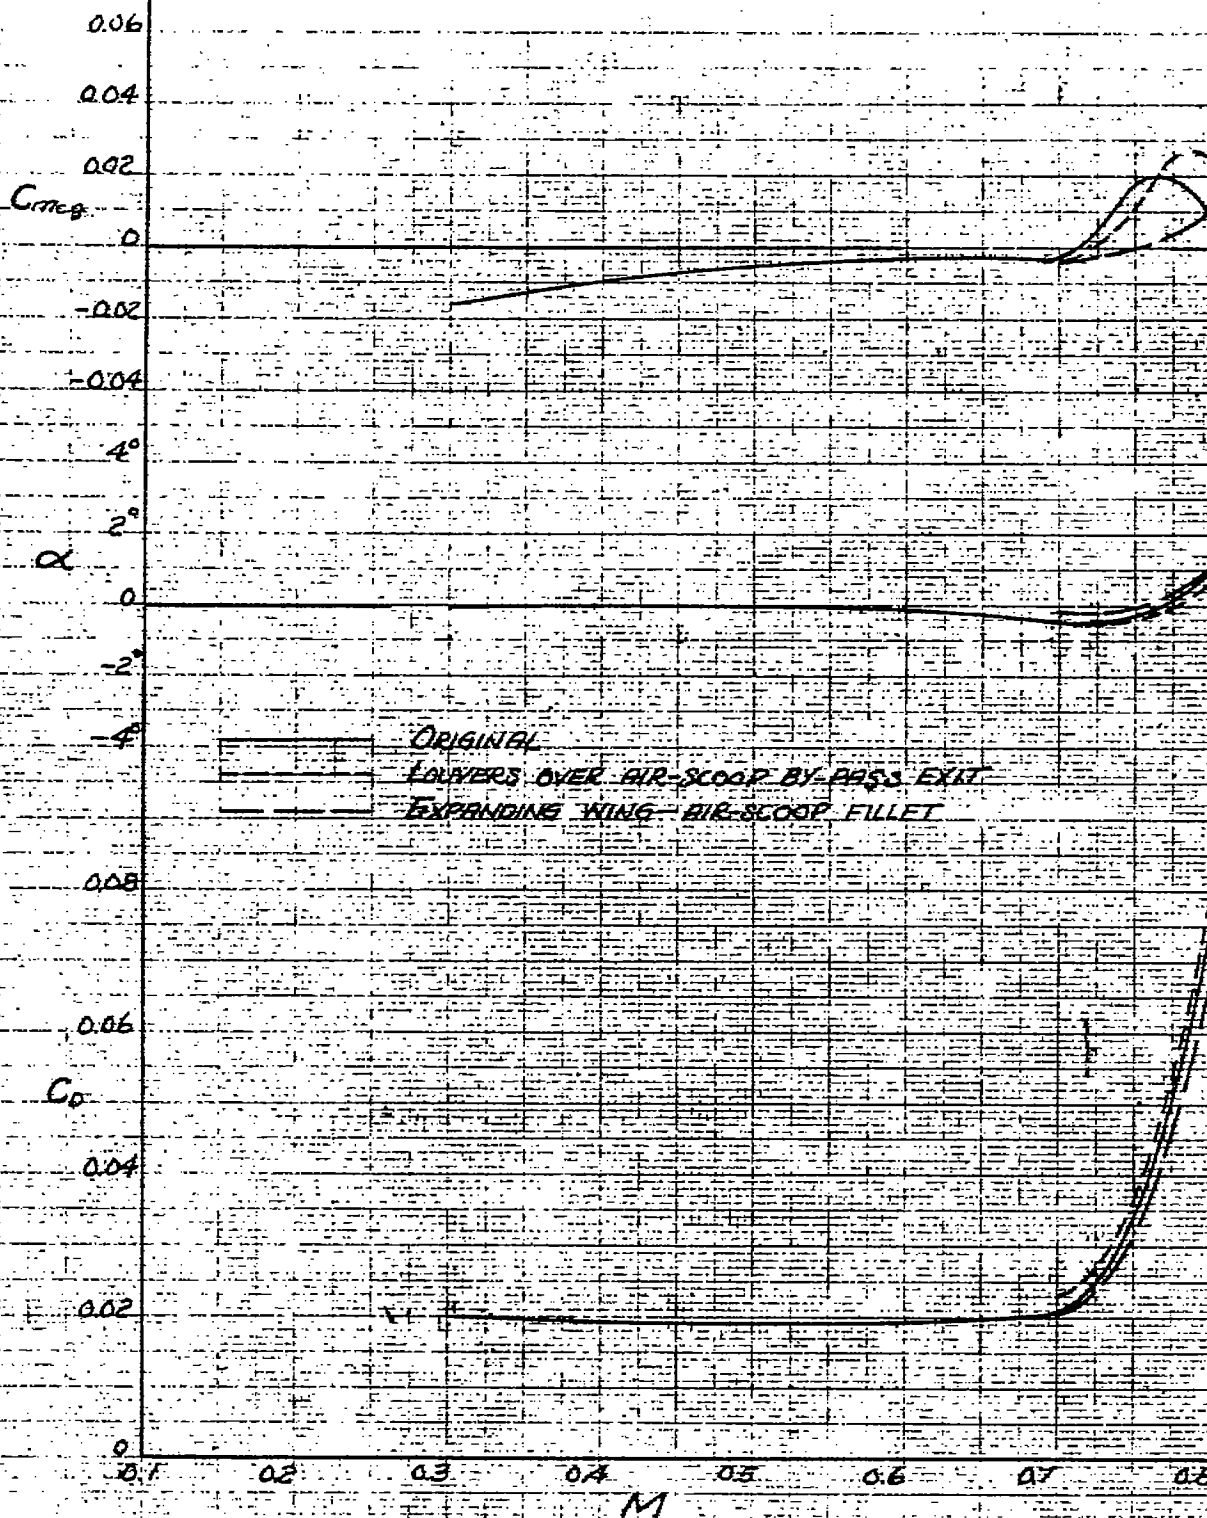 0.06
0.04
0.02
Cmcg
0
-0.02
-0.04
4°
2°
α
0
-2°
-4°
ORIGINAL
LOUVERS OVER AIR-SCOOP BY-PASS EXIT
EXPANDING WING-AIR-SCOOP FILLET
0.08
0.06
CD
0.04
0.02
0
0.1 0.2 0.3 0.4 0.5 0.6 0.7 0.8
M